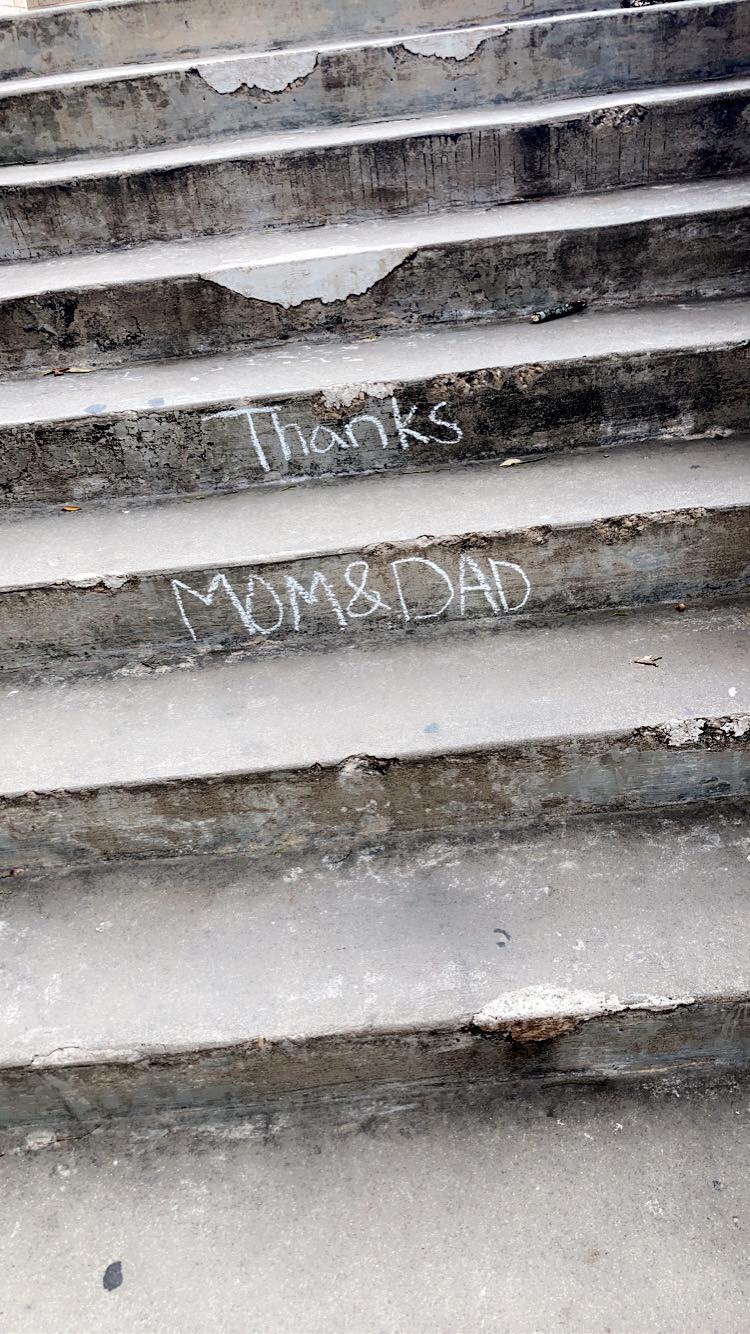 Thanks
MOM & DAD